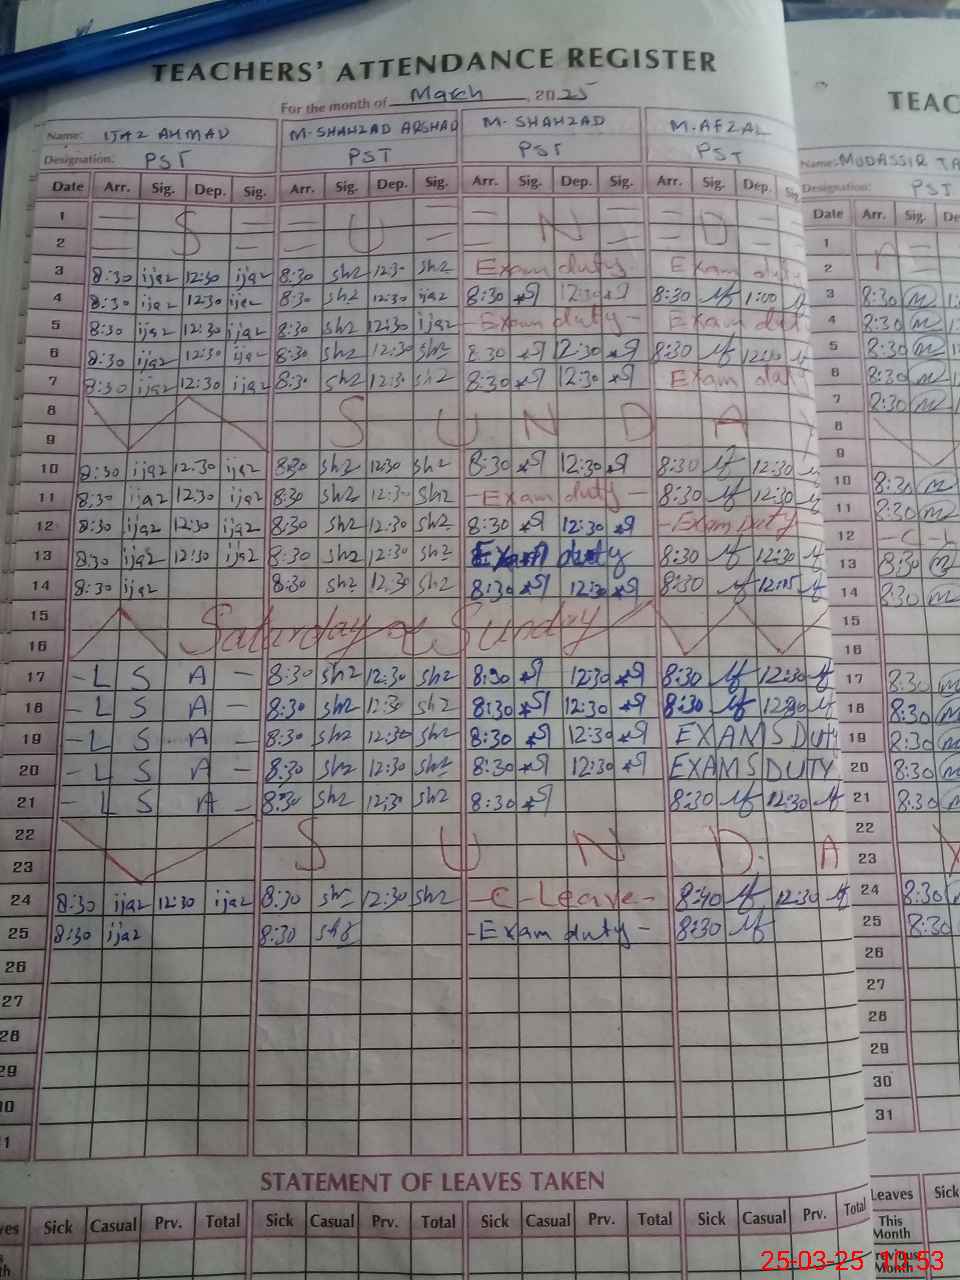 TEACHERS' ATTENDANCE REGISTER
For the month of March, 2025
Name: IJAZ AHMAD M-SHAHZAD ARSHAD M-SHAHZAD M.AFZAL
Designation: PST PST PST PST
Date Arr. Sig. Dep. Sig. Arr. Sig. Dep. Sig. Arr. Sig. Dep. Sig. Arr. Sig. Dep. Sig.
1
2 S U N D
3 8:30 ijaz 12:30 ijaz 8:30 shz 12:30 shz Exam duty Exam duty
4 8:30 ijaz 12:30 ijaz 8:30 shz 12:30 ijaz 8:30 12:30 8:30 1:00
5 8:30 ijaz 12:30 ijaz 8:30 shz 12:30 ijaz - Exam duty - Exam dut
6 8:30 ijaz 12:30 ijaz 8:30 shz 12:30 shz 8:30 12:30 8:30 12:30
7 8:30 ijaz 12:30 ijaz 8:30 shz 12:30 shz 8:30 12:30 Exam dut
8 S U N D A
9
10 8:30 ijaz 12:30 ijaz 8:30 shz 12:30 shz 8:30 12:30 8:30 12:30
11 8:30 ijaz 12:30 ijaz 8:30 shz 12:30 shz - Exam duty - 8:30 12:30
12 8:30 ijaz 12:30 ijaz 8:30 shz 12:30 shz 8:30 12:30 - Exam Duty
13 8:30 ijaz 12:30 ijaz 8:30 shz 12:30 shz Exam duty 8:30 12:30
14 8:30 ijaz 8:30 shz 12:30 shz 8:30 12:30 8:30 12:15
15 Saturday & Sunday
16
17 - L S A - 8:30 shz 12:30 shz 8:30 12:30 8:30 12:30
18 - L S A - 8:30 shz 12:30 shz 8:30 12:30 8:30 12:30
19 - L S A - 8:30 shz 12:30 shz 8:30 12:30 EXAMS DUTY
20 - L S A - 8:30 shz 12:30 shz 8:30 12:30 EXAMS DUTY
21 - L S A - 8:30 shz 12:30 shz 8:30 8:30 12:30
22
23 S U N D. A
24 8:30 ijaz 12:30 ijaz 8:30 shz 12:30 shz - C - Leave - 8:40 12:30
25 8:30 ijaz 8:30 shz - Exam duty - 8:30
26
27
28
29
30
31
STATEMENT OF LEAVES TAKEN
Sick Casual Prv. Total Sick Casual Prv. Total Sick Casual Prv. Total Sick Casual Prv. Total
TEAC
Name: MUDASSIR
Designation: PST
Date Arr. Sig. De
1
2
3 8:30
4 8:30
5 8:30
6 8:30
7 8:30
8
9
10 8:30
11 8:30
12 - C - L
13 8:30
14 8:30
15
16
17 8:30
18 8:30
19 8:30
20 8:30
21 8:30
22
23
24 8:30
25 8:30
26
27
28
29
30
31
Leaves Sick
This
Month
Month
25-03-25